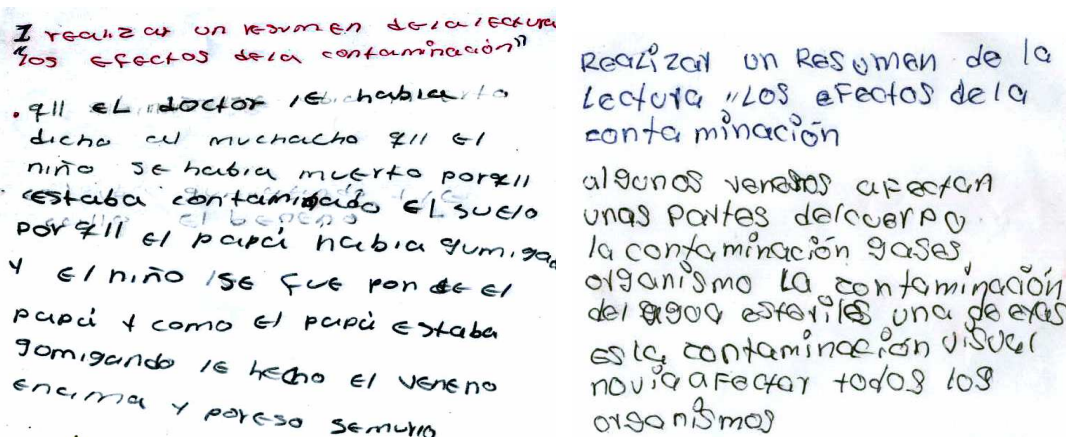 I realizar un resumen dela lectura
"los efectos dela contaminación"
. qll EL doctor lE habia
dicho al muchacho qll El
niño SE habia muerto porqll
Estaba contamigado EL suelo
por qll El papá habia gumiga
y El niño SE fue pon de El
papá y como El papá Estaba
gomigando lE hecho El veneno
encima y porEso SEmurio
Realizar un Resumen de la
Lectura "Los efectos dela
contaminación
algunos venenos afectan
unas partes delcuerpo
la contaminación gases
organismo La contaminación
del agua esteriles una de
es la contaminación visual
novia afectar todos los
organismos